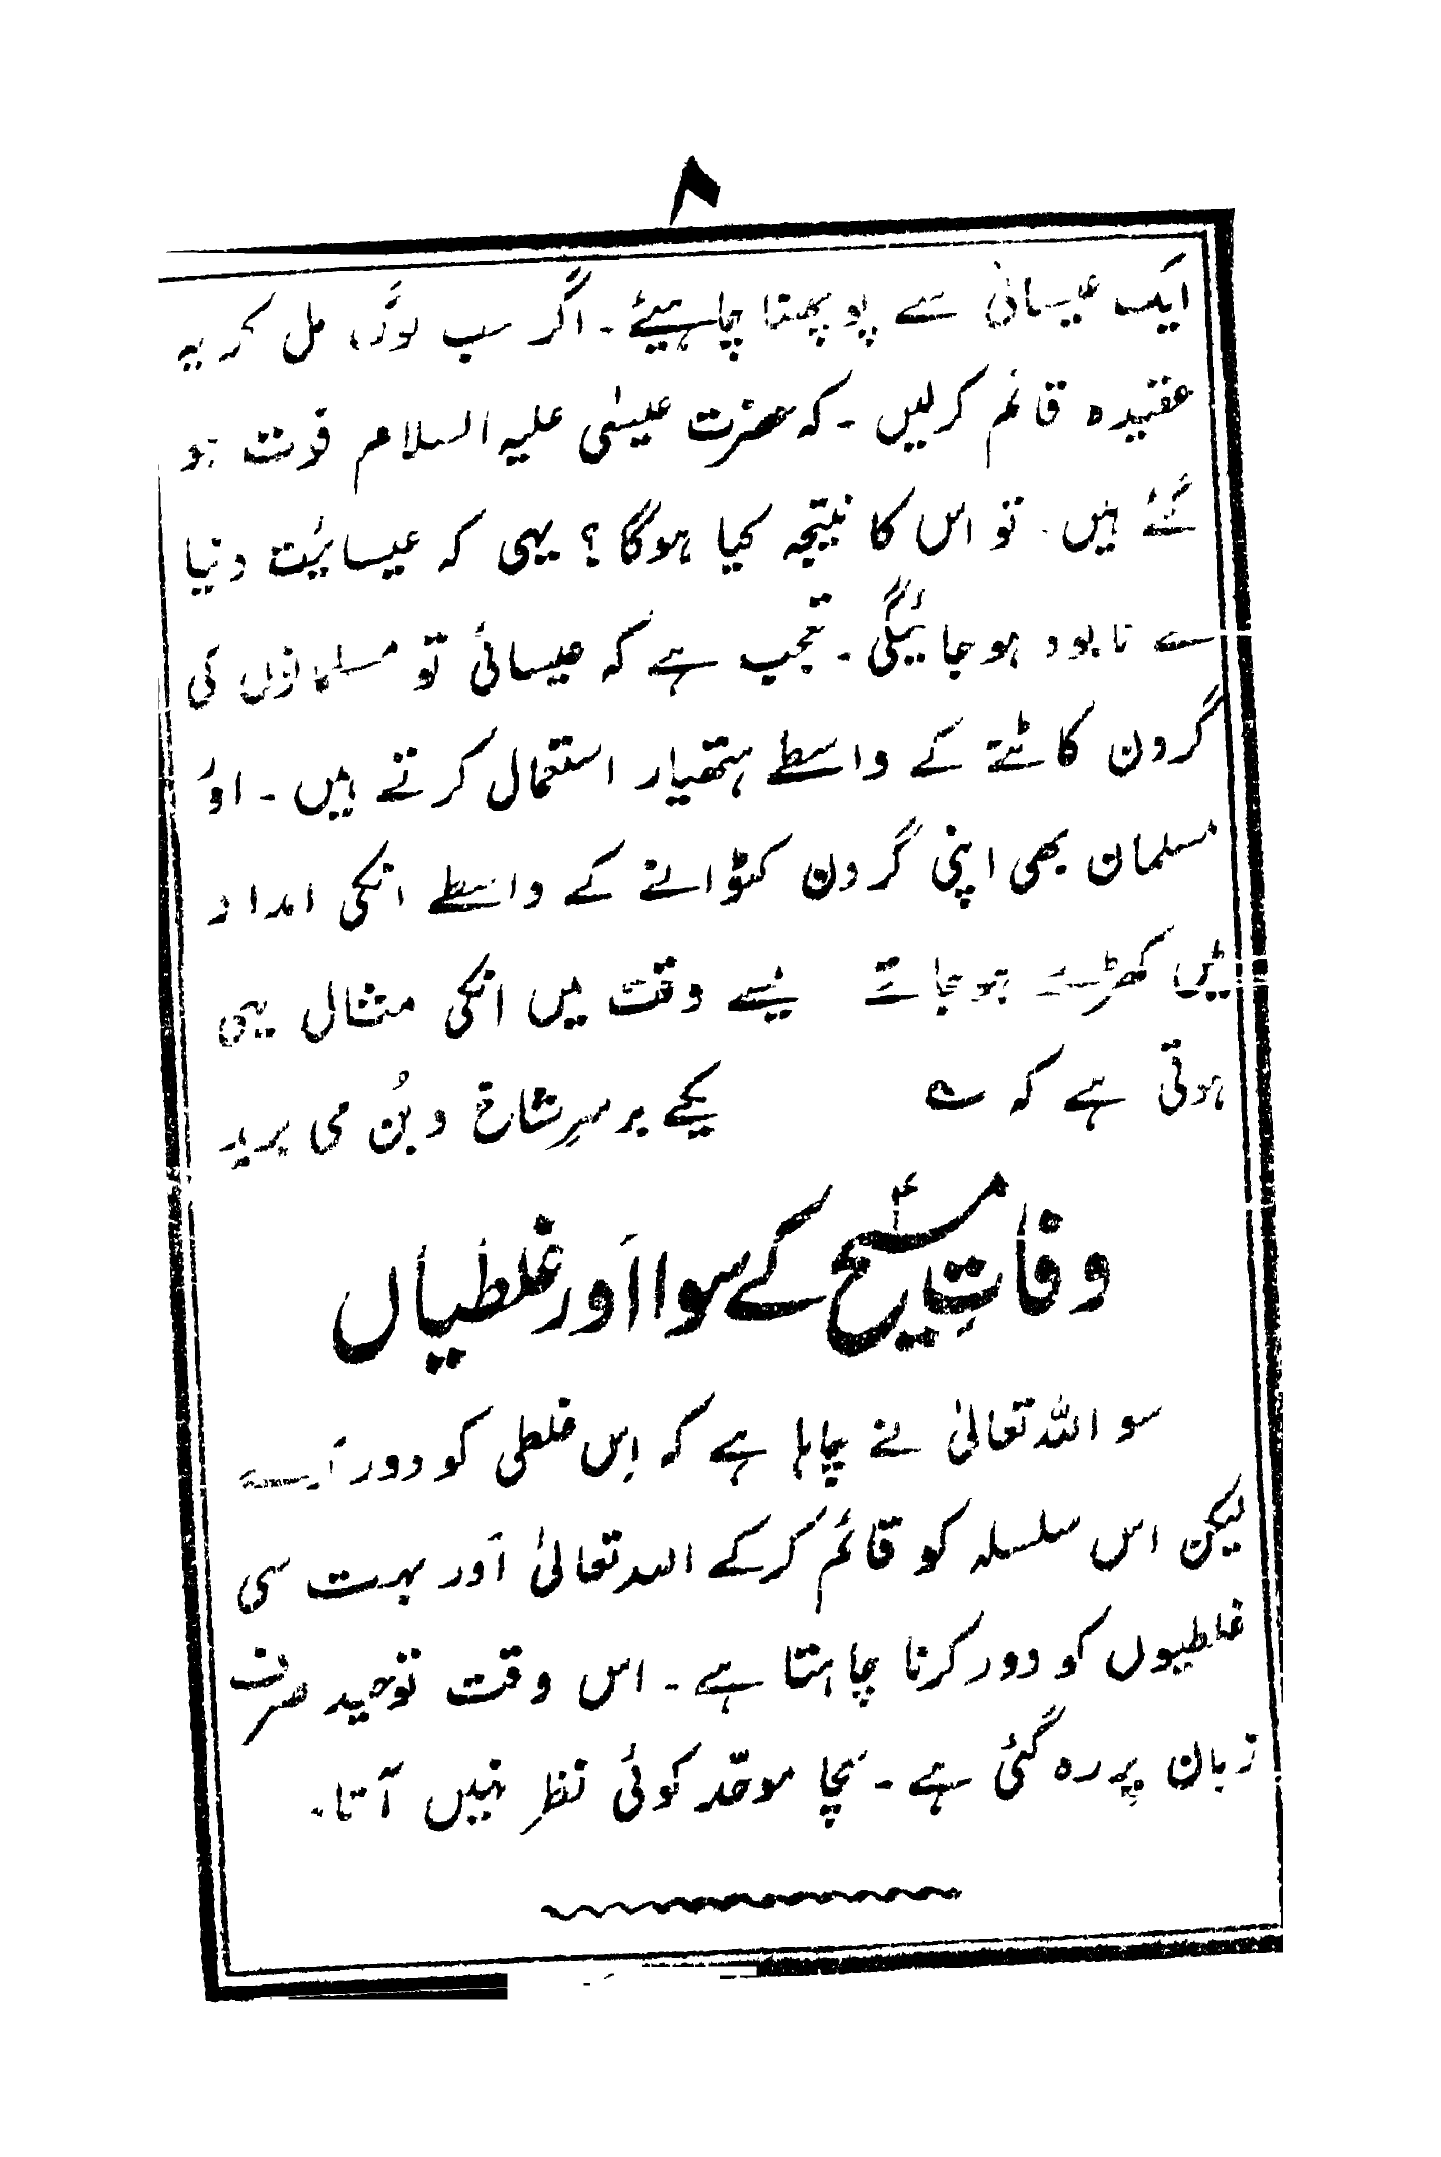 ۸
ایک عیسائی سے پوچھنا چاہیئے۔ اگر سب لوگ مل کر یہ
عقیدہ قائم کرلیں۔ کہ حضرت عیسٰی علیہ السلام فوت ہو
گئے ہیں۔ تو اس کا نتیجہ کیا ہوگا؟ یہی کہ عیسائیت دنیا
سے نابود ہوجائیگی۔ تعجب ہے کہ عیسائی تو مسلمانوں کی
گردن کاٹنے کے واسطے ہتھیار استعمال کرتے ہیں۔ اور
مسلمان بھی اپنی گردن کٹوانے کے واسطے انکی امداد
میں کھڑے ہوجاتے وقت میں انکی مثال یہی
ہوتی ہے کہ ؎ یکے برسرِ شاخ و بُن می برید
وفاتِ مسیحؑ کے سوا اَور غلطیاں
سو اللہ تعالیٰ نے چاہا ہے کہ اِس غلطی کو دور کرے
لیکن اس سلسلہ کو قائم کرکے اللہ تعالیٰ اَور بہت سی
غلطیوں کو دور کرنا چاہتا ہے۔ اس وقت توحید صرف
زبان پر رہ گئی ہے۔ سچا موحّد کوئی نظر نہیں آتا۔